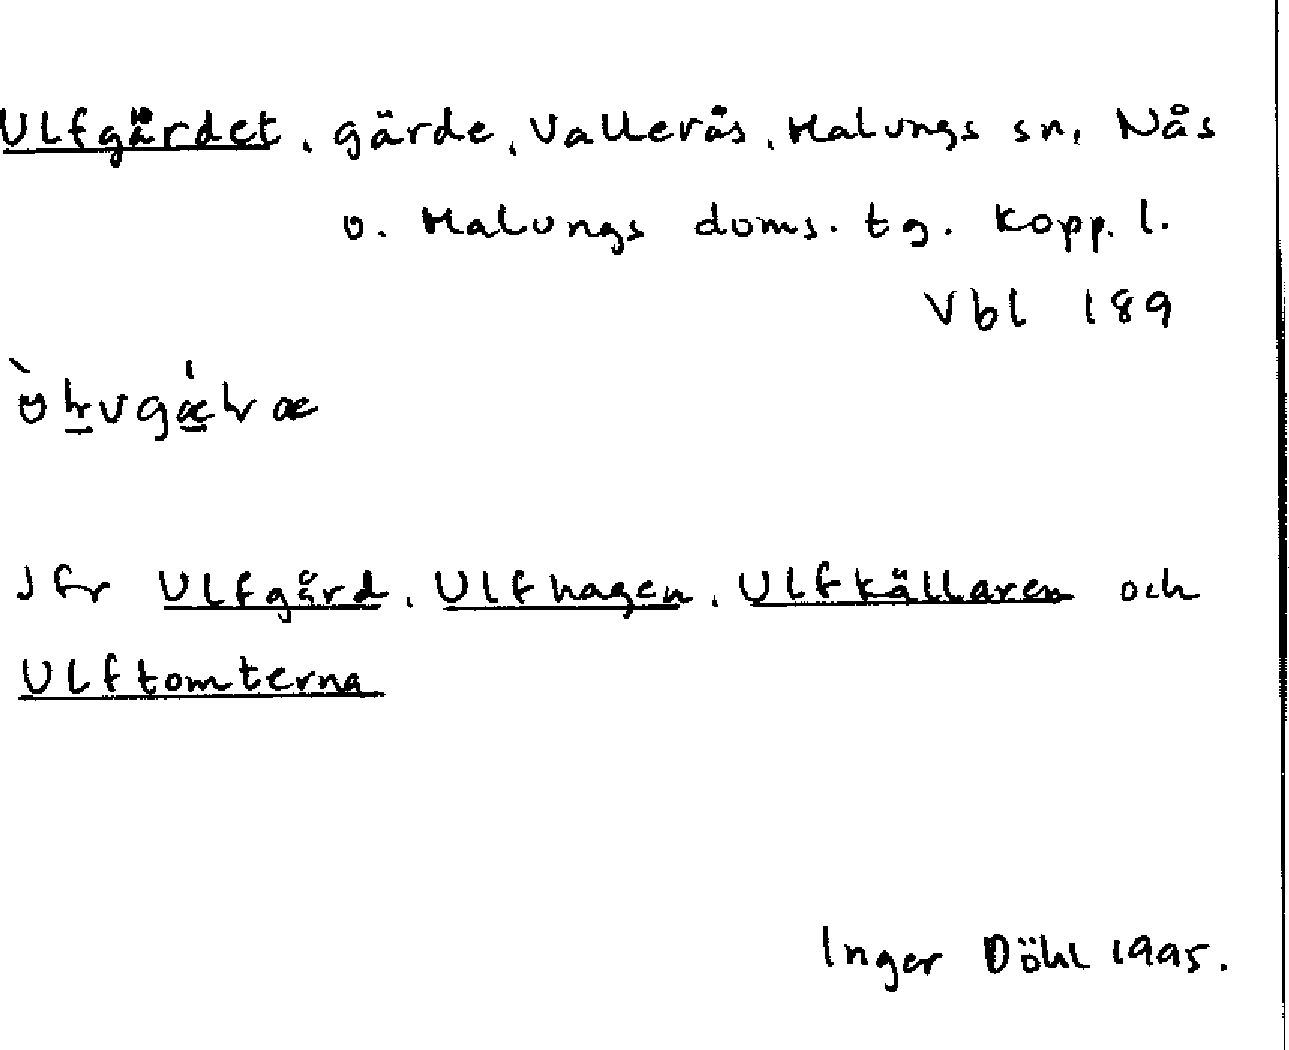 Ulfgärdet, gärde, Vallerås, Malungs sn, Nås
o. Malungs doms. tg. Kopp. l.
Vbl 189
Jfr Ulfgård, Ulfhagen, Ulfkällaren och
Ulftomterna
Inger Döhl 1995.